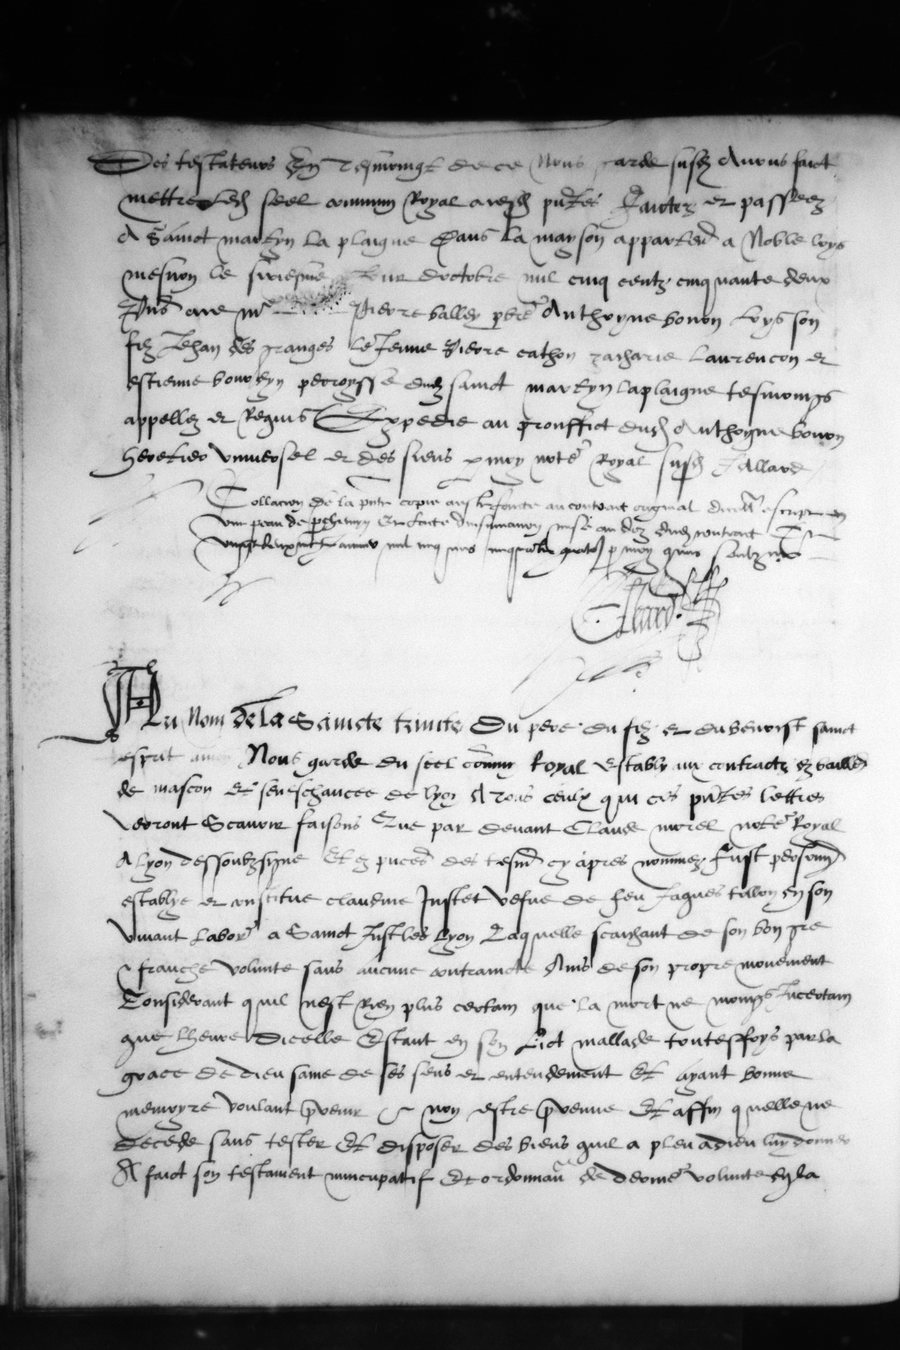 Des testateurs En tesmoingt de ce Nous garde susd Avons faict
mettre led seel commun Royal ausd pntes Faictez et passees
A Sainct martyn la plaigne Dans la mayson appartent a Noble loys
mesnon le sixiesme Jour doctobre mil cinq centz cinquante deux
Pierre balley pbre Anthoyne bonon Loys son
filz Jehan des granges le Jeune Pierre cathon zacharie Laurencon et
estienne bourdyn perroysse dud sainct martyn laplaigne tesmoings
appellez et Requis Expedie au prouffict dud Anthoyne bonon
heretier vniuersel et des siens p moy notre Royal susd Allard
Collacion de la pnte copie a este faicte au contract original escript en
vne peau de perchemyn Et ladicte Insinuacion mise au doz dud contract
p moy
Au Nom de la Saincte trinite Du pere du filz et du benoist sainct
esprit amen Nous garde du seel commun Royal estably aux contractz ez bailld
de mascon Et seneschaucee de lyon A tous ceulx qui ces pntes lettres
verront Scauoir faisons Que par deuant Claude morel notre Royal
A lyon dessoubzsigne Et ez pnces des tesm cy apres nommez Fust personn
establye et constitue claudine Justet vefue de feu Jaques tillon En son
viuant Labor a Sainct Just les Lyon Laquelle scaichant de son bon gre
franche volunte sans aucune contraincte Ains de son propre mouuement
Considerant quil nest Rien plus certain que la mort ne moings Incertain
que lheure Dicelle Estant en son Lict mallade touteffoys par la
grace de dieu saine de ses sens et entendement Et ayant bonne
memoyre voulant preuenir et non estre preuenue Et affin quelle ne
decede sans tester Et disposer des biens quil a pleu a dieu luy donner
A faict son testament nuncupatif Et ordonnance de derniere volunte En la